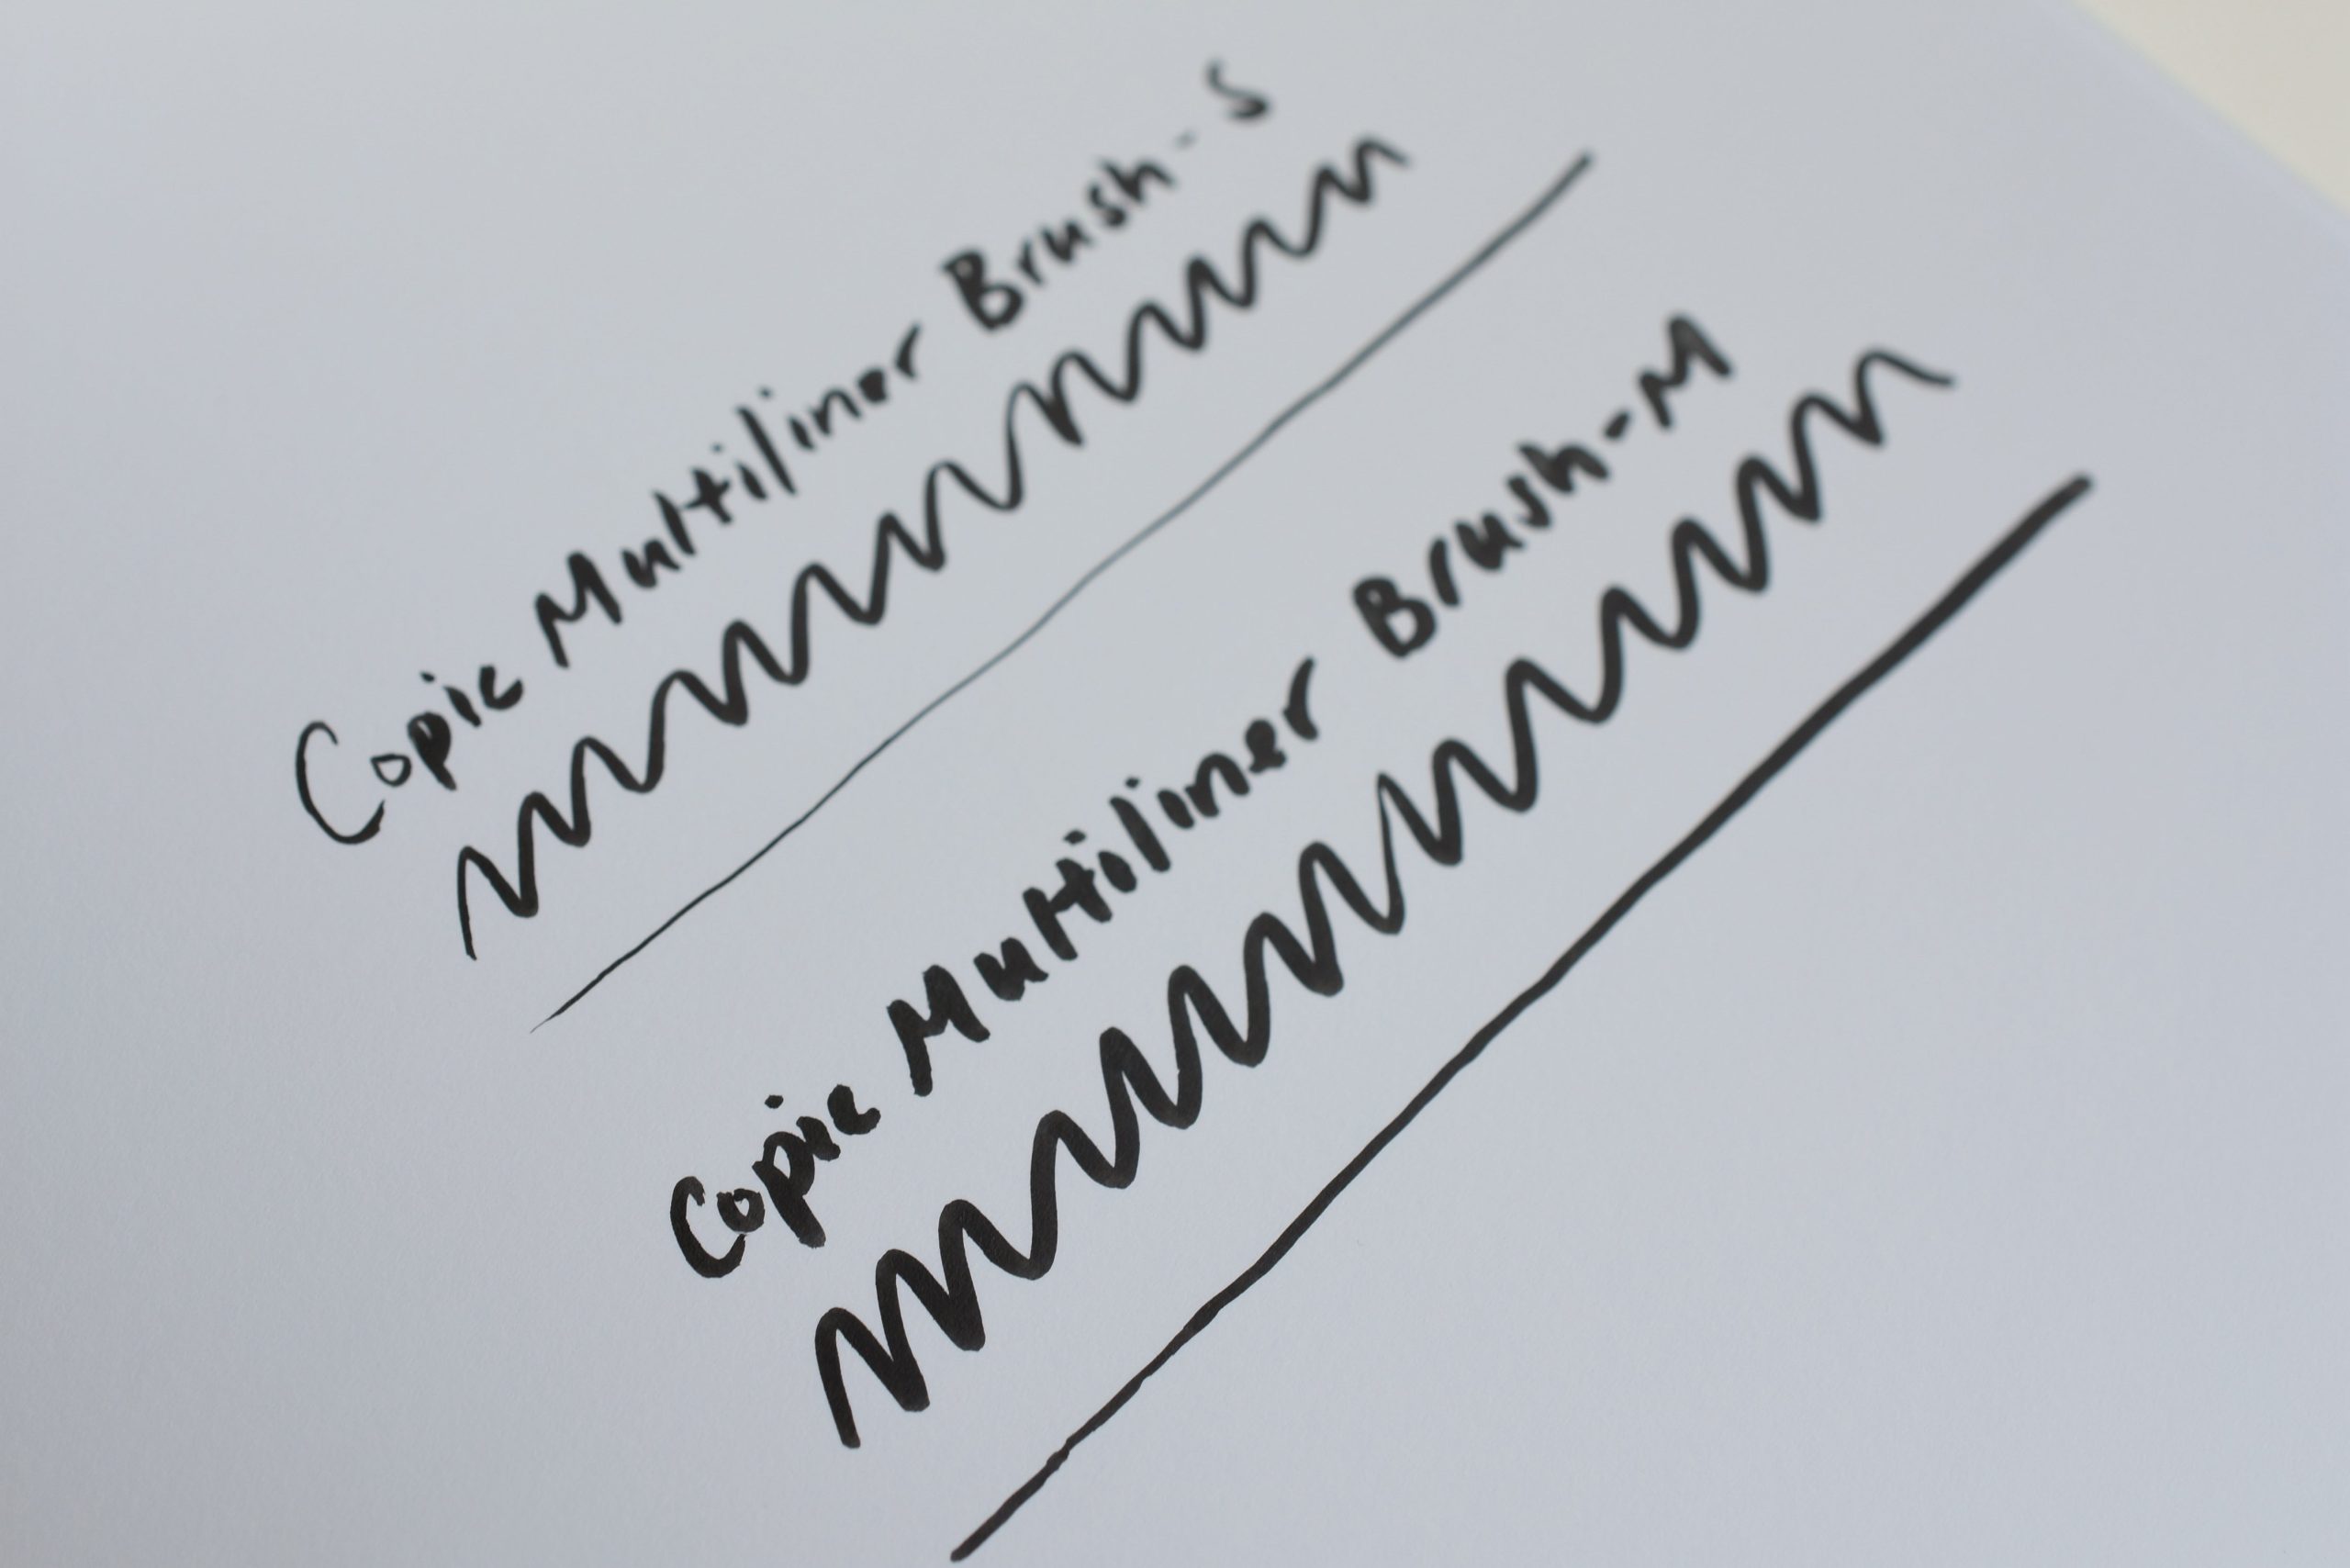 Copic Multiliner Brush-S
Copic Multiliner Brush-M